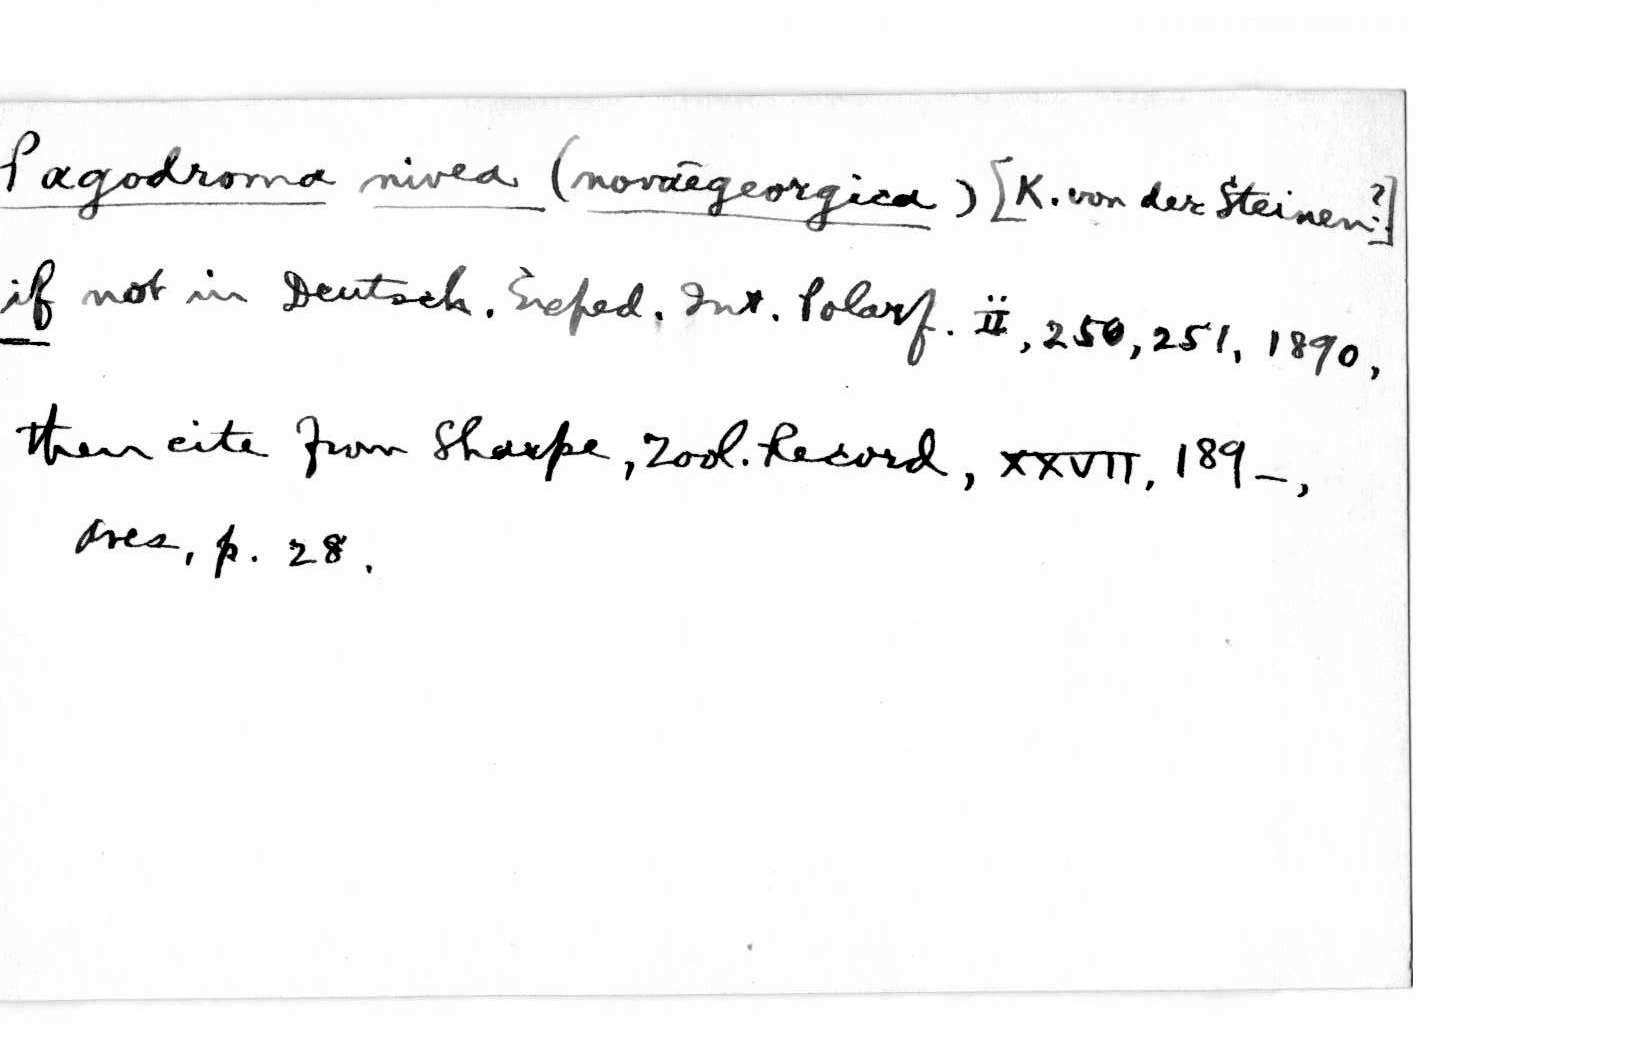 Pagodroma nivea (novaegeorgica) [K. von der Steinen?]
if not in Deutsch. Exped. Int. Polarf. ii, 250, 251, 1890,
then cite from Sharpe, Zool. Record, XXVII, 189_,
Aves, p. 28.